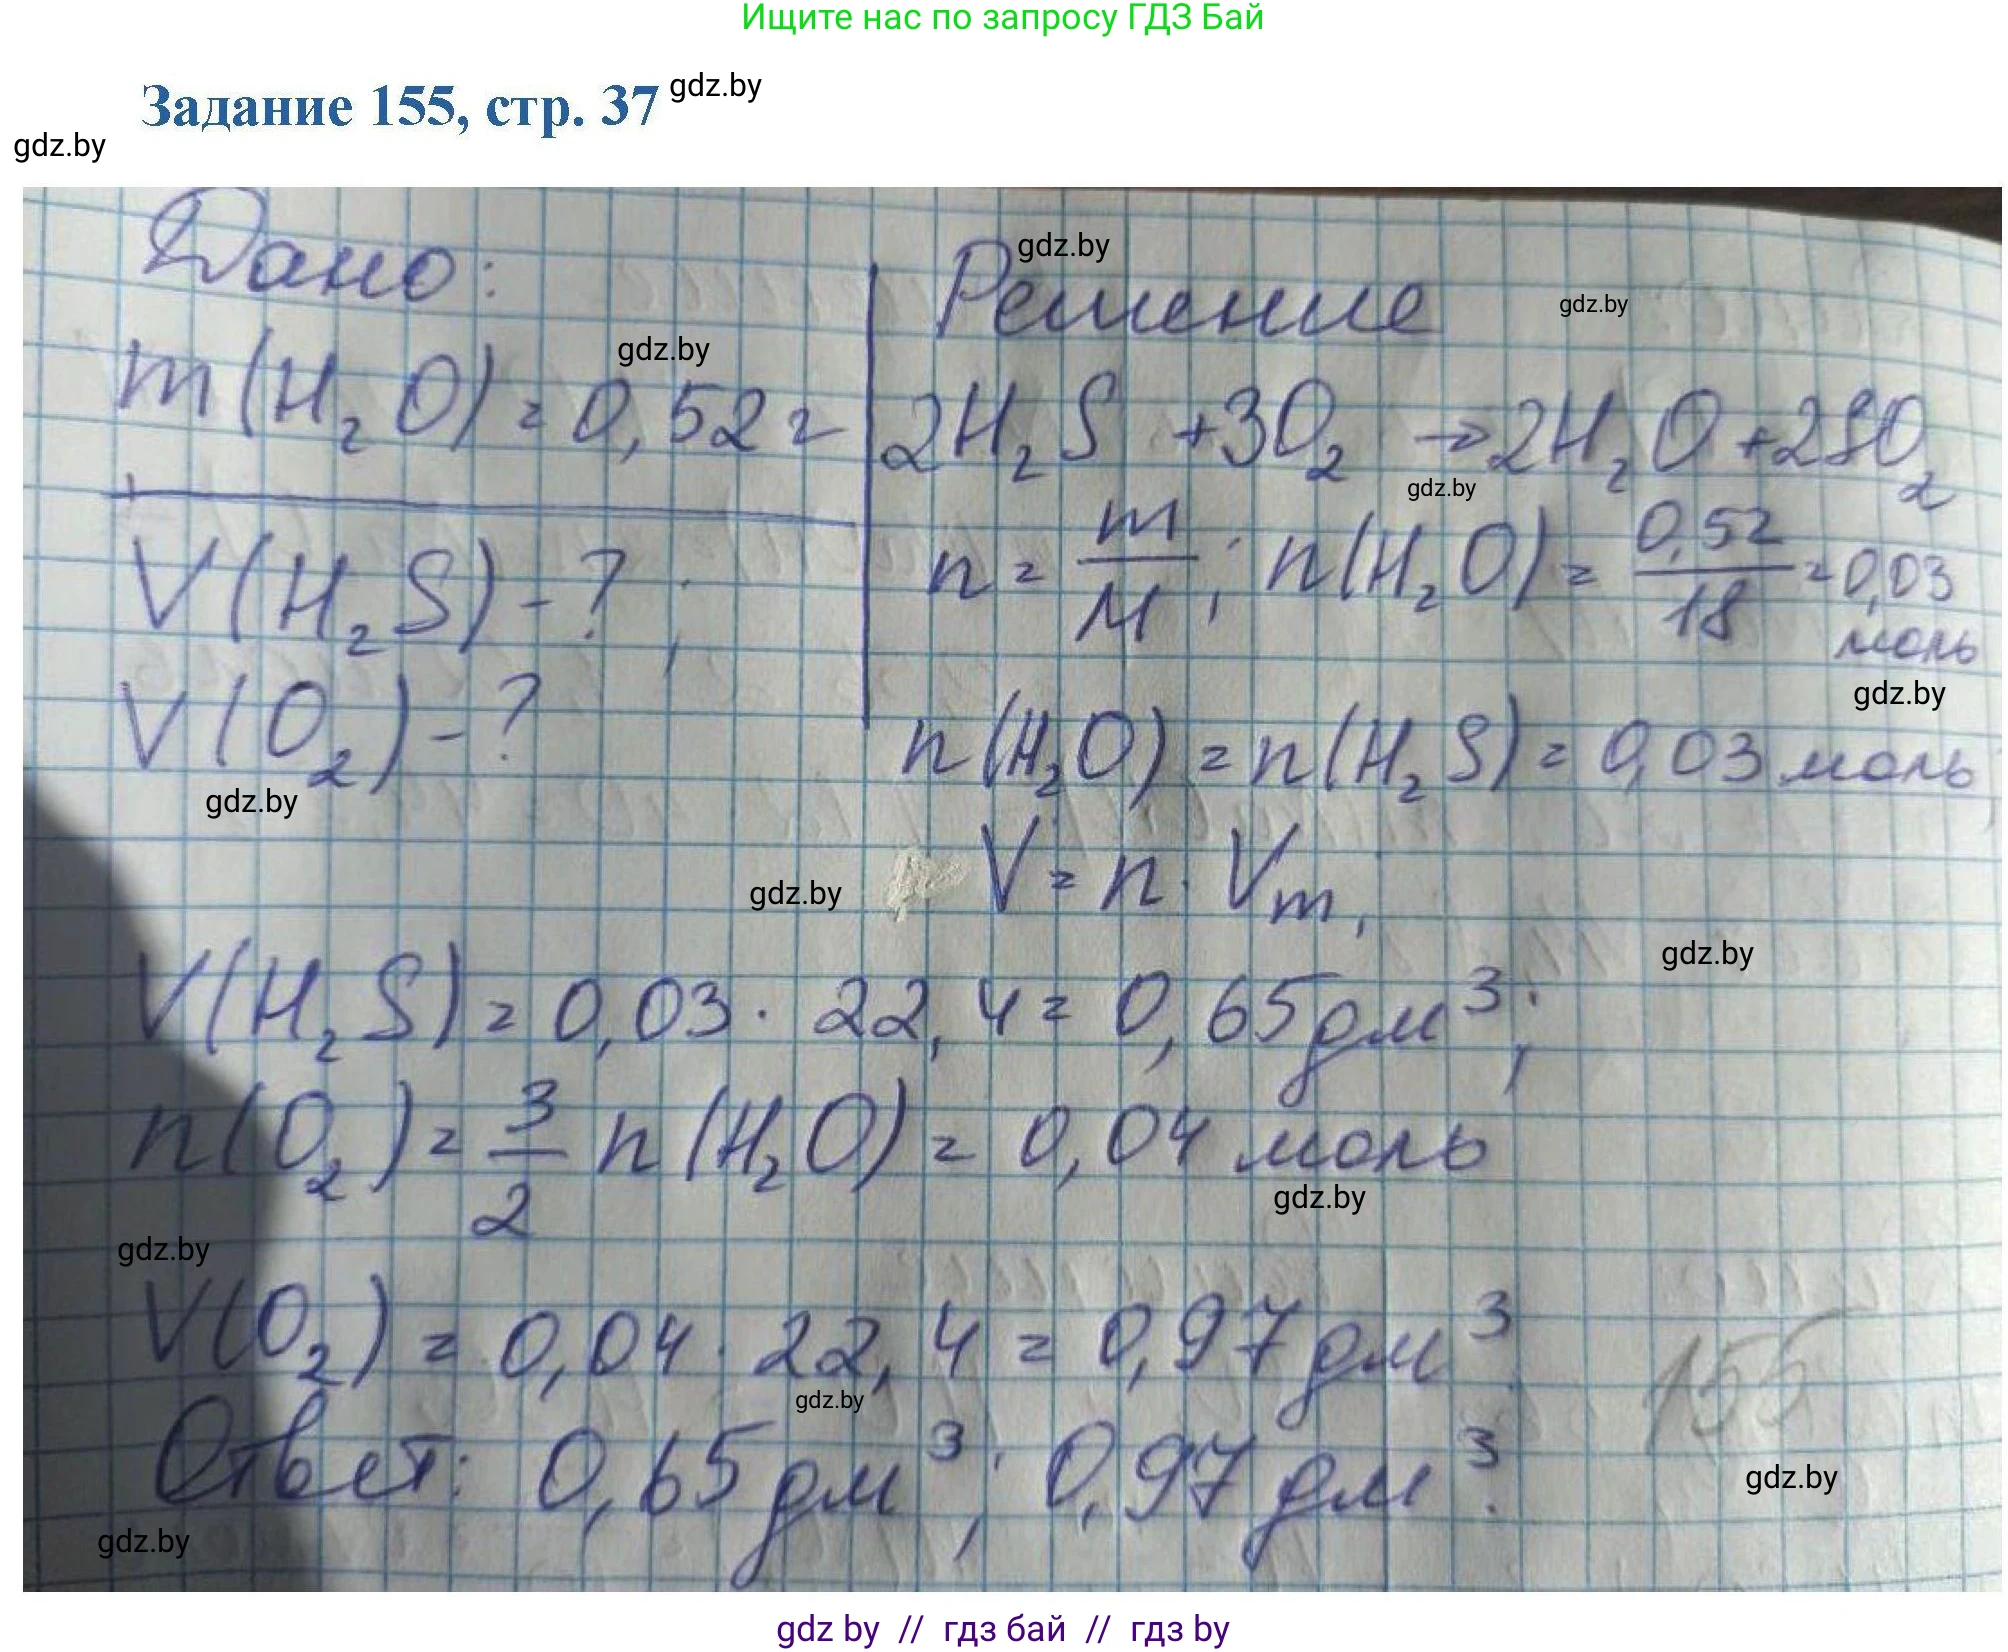 Ищите нас по запросу ГДЗ Бай
Задание 155, стр. 37 gdz.by
gdz.by
Дано:
gdz.by
m(H₂O) = 0,52 г
V(H₂S) - ?;
V(O₂) - ?
gdz.by
gdz.by
Решение
gdz.by
2H₂S + 3O₂ → 2H₂O + 2SO₂
gdz.by
n = m/M; n(H₂O) = 0,52/18 = 0,03 моль
gdz.by
n(H₂O) = n(H₂S) = 0,03 моль,
gdz.by
V = n · Vm,
gdz.by
V(H₂S) = 0,03 · 22,4 = 0,65 дм³;
n(O₂) = 3/2 n(H₂O) = 0,04 моль
gdz.by
gdz.by
V(O₂) = 0,04 · 22,4 = 0,97 дм³
gdz.by
155
Ответ: 0,65 дм³; 0,97 дм³.
gdz.by
gdz.by
gdz by // гдз бай // гдз by